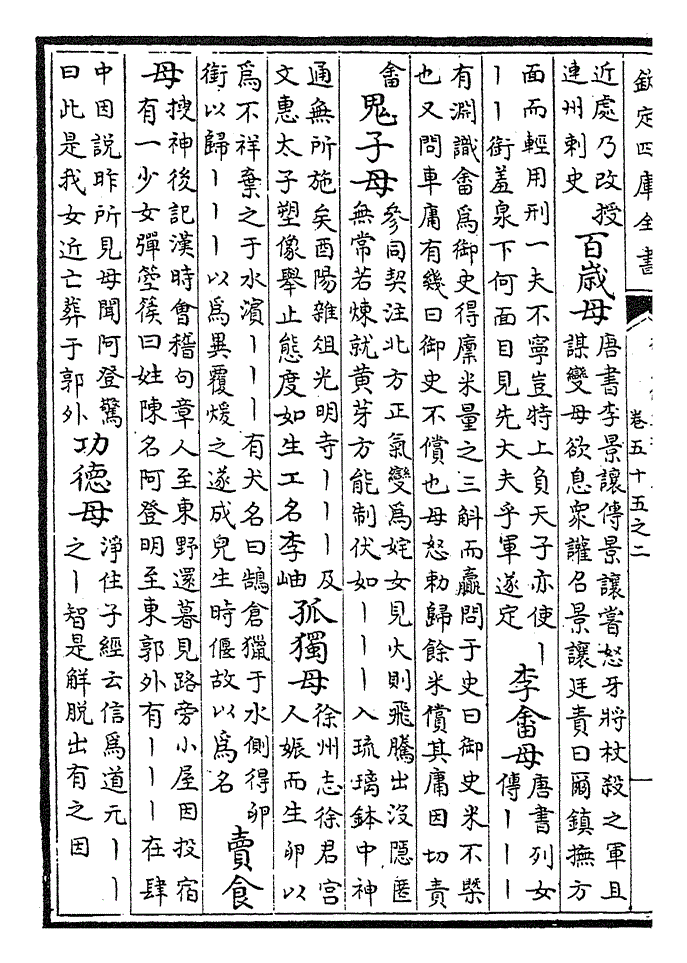 欽定四庫全書
卷五十五之二
近處乃改授
連州刺史
百歲母
唐書李景讓傳景讓嘗怒牙將杖殺之軍且
謀變母欲息衆讙召景讓廷責曰爾鎮撫方
面而輕用刑一夫不寧豈特上負天子亦使丨
丨丨銜羞泉下何面目見先大夫乎軍遂定
李畬母
唐書列女
傳丨丨丨
有淵識畬為御史得廩米量之三斛而贏問于史曰御史米不槩
也又問車庸有幾曰御史不償也母怒勅歸餘米償其庸因切責
畬
鬼子母
參同契注北方正氣變為姹女見火則飛騰出沒隱匿
無常若煉就黄芽方能制伏如丨丨丨入琉璃鉢中神
通無所施矣酉陽雜俎光明寺丨丨丨及
文惠太子塑像舉止態度如生工名李岫
孤獨母
徐州志徐君宫
人娠而生卵以
為不祥棄之于水濱丨丨丨有犬名曰鵠倉獵于水側得卵
銜以歸丨丨丨以為異覆煖之遂成兒生時偃故以為名
賣食
母
搜神後記漢時會稽句章人至東野還暮見路旁小屋因投宿
有一少女彈箜篌曰姓陳名阿登明至東郭外有丨丨丨在肆
中因說昨所見母聞阿登驚
曰此是我女近亡葬于郭外
功德母
淨住子經云信為道元丨丨
之丨智是解脫出有之因